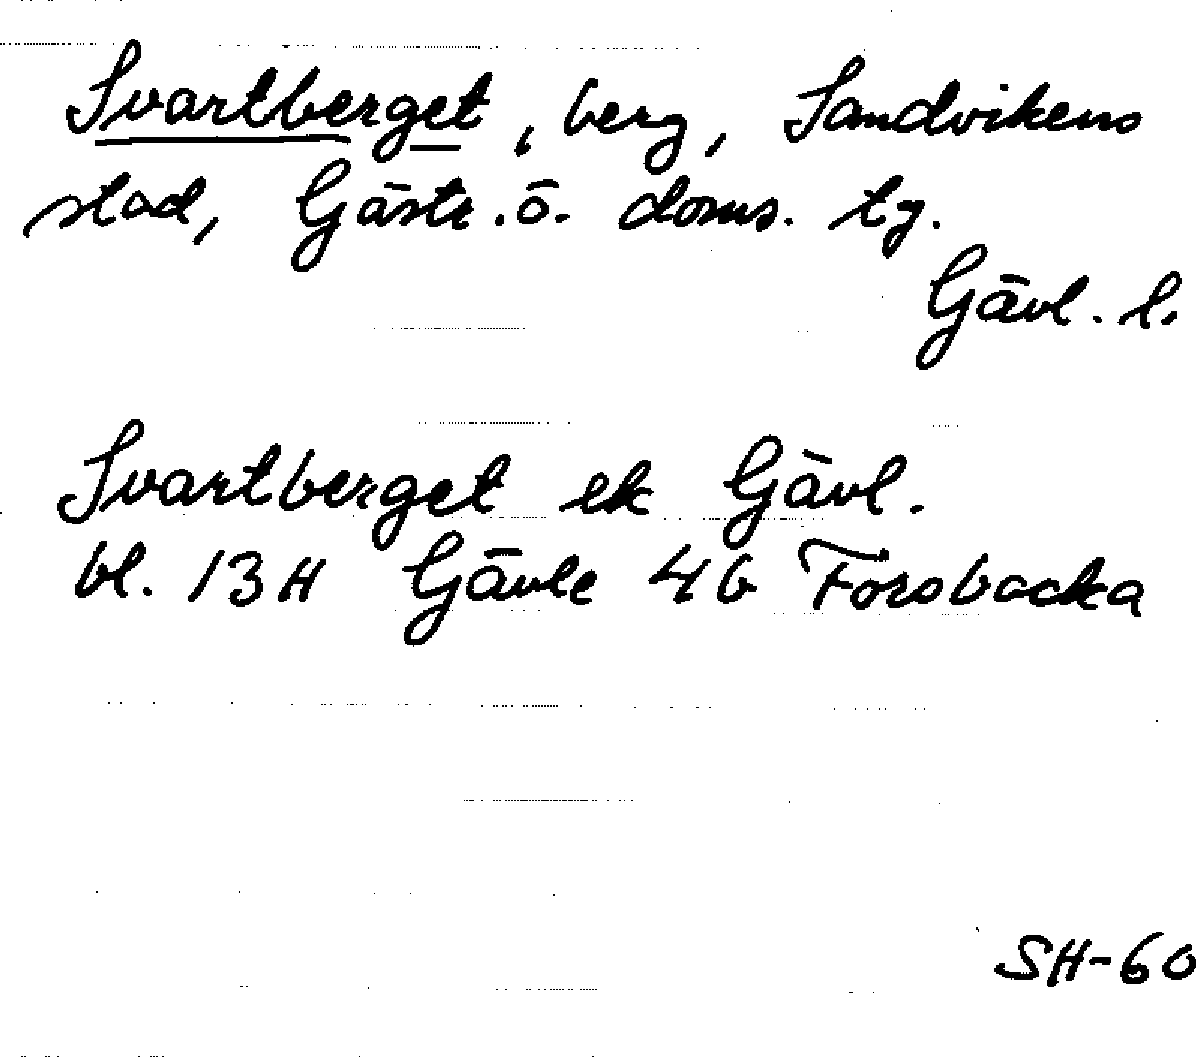 Svartberget, berg, Sandvikens
stad, Gästr. ö. doms. tg.
Gävl. l.
Svartberget ek Gävl.
bl. 13H Gävle 4b Forsbacka
SH-60